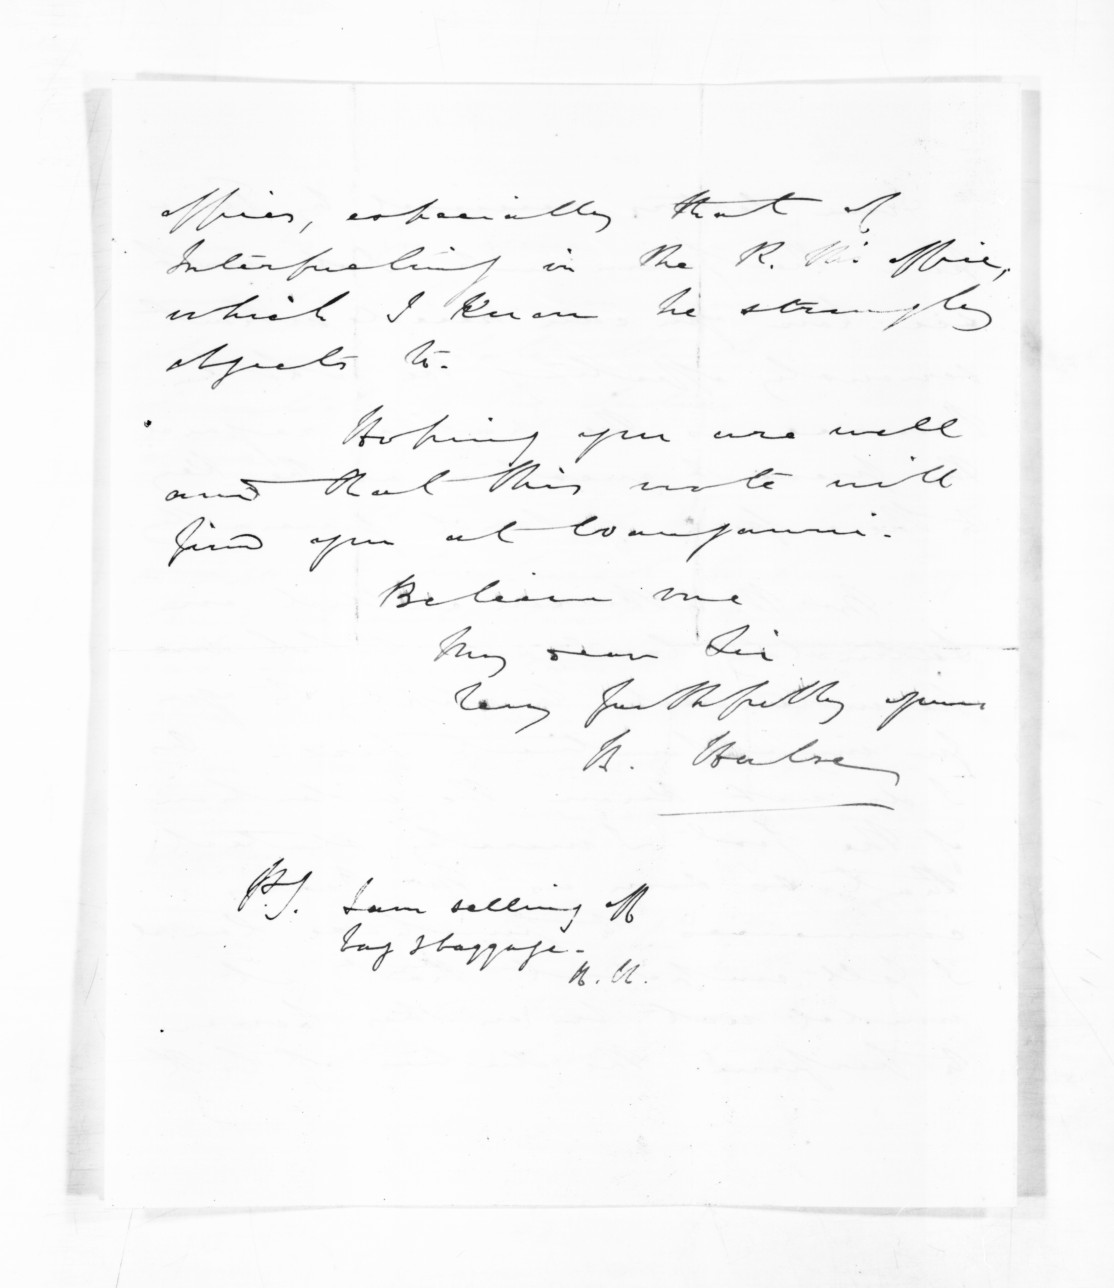 offices, especially that of
Interpreting in the R. M's office,
which I know he strongly
objects to.
Hoping you are well
and that this note will
find you at Wanganui.
Believe me
My dear Sir
Very faithfully yours
H. Halse
P.S. I am selling off
bag & baggage.
H. H.